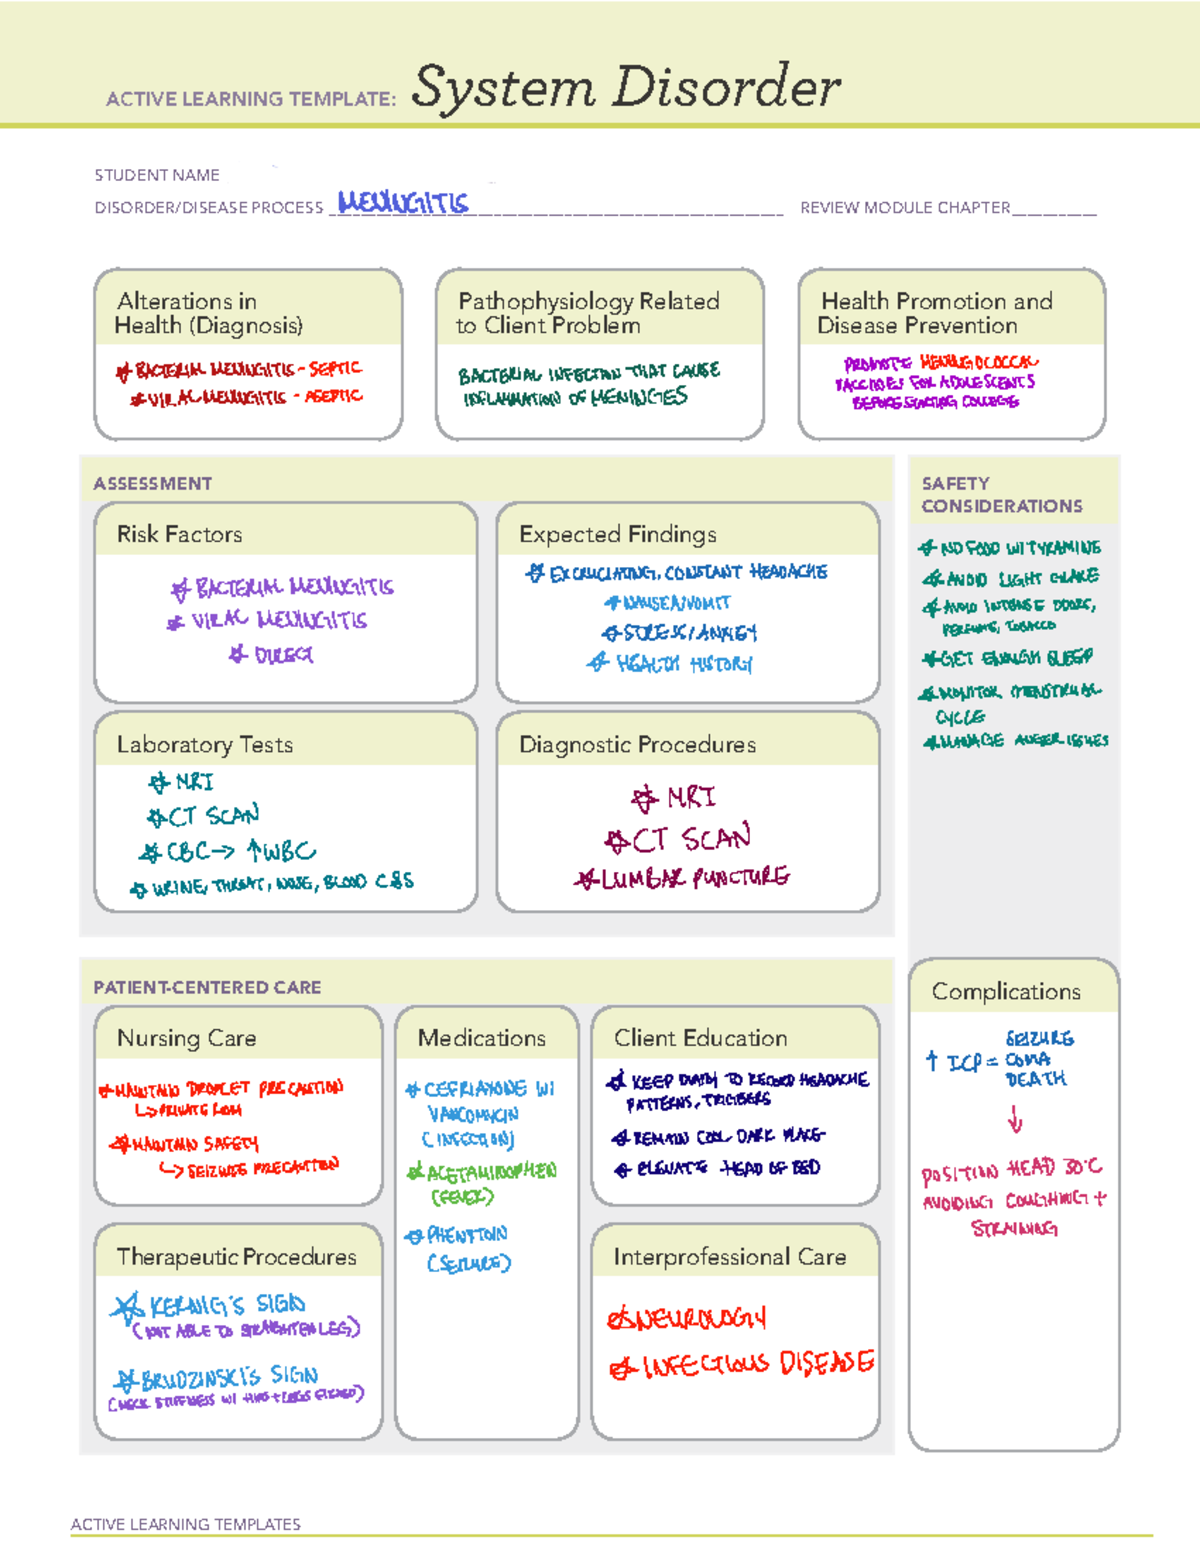 ACTIVE LEARNING TEMPLATE: System Disorder
STUDENT NAME
DISORDER/DISEASE PROCESS MENINGITIS REVIEW MODULE CHAPTER
Alterations in
Health (Diagnosis)
BACTERIAL MENINGITIS - SEPTIC
VIRAL MENINGITIS - ASEPTIC
Pathophysiology Related
to Client Problem
BACTERIAL INFECTION THAT CAUSE
INFLAMMATION OF MENINGIES
Health Promotion and
Disease Prevention
PROMOTE MENINGOCOCCAL
VACCINES FOR ADOLESCENTS
BEFORE STARTING COLLEGE
ASSESSMENT
Risk Factors
BACTERIAL MENINGITIS
VIRAL MENINGITIS
DIRECT
Expected Findings
EXCRUCIATING, CONSTANT HEADACHE
NAUSEA/VOMIT
STRESS/ANXIETY
HEALTH HISTORY
Laboratory Tests
MRI
CT SCAN
CBC → ↑ WBC
URINE, THROAT, NOSE, BLOOD C&S
Diagnostic Procedures
MRI
CT SCAN
LUMBAR PUNCTURE
SAFETY
CONSIDERATIONS
NO FOOD W/ TYRAMINE
AVOID LIGHT GLARE
AVOID INTENSE ODORS,
PERFUME, TOBACCO
GET ENOUGH SLEEP
MONITOR MENSTRUAL
CYCLE
MANAGE ANGER ISSUES
PATIENT-CENTERED CARE
Nursing Care
MAINTAIN DROPLET PRECAUTION
↳ PRIVATE ROOM
MAINTAIN SAFETY
↳ SEIZURE PRECAUTION
Medications
CEFRIAXONE W/
VANCOMYCIN
(INFECTION)
ACETAMINOPHEN
(FEVER)
PHENYTOIN
(SEIZURE)
Client Education
KEEP DIARY TO RECORD HEADACHE
PATTERNS, TRIGGERS
REMAIN COOL DARK PLACE
ELEVATE HEAD OF BED
Therapeutic Procedures
KERNIG'S SIGN
(NOT ABLE TO STRAIGHTEN LEG)
BRUDZINSKI'S SIGN
(NECK STIFFNESS W/ HIPS + LEGS FLEXED)
Interprofessional Care
NEUROLOGY
INFECTIOUS DISEASE
Complications
SEIZURE
↑ ICP = COMA
DEATH
↓
POSITION HEAD 30°C
AVOIDING COUGHING +
STRAINING
ACTIVE LEARNING TEMPLATES